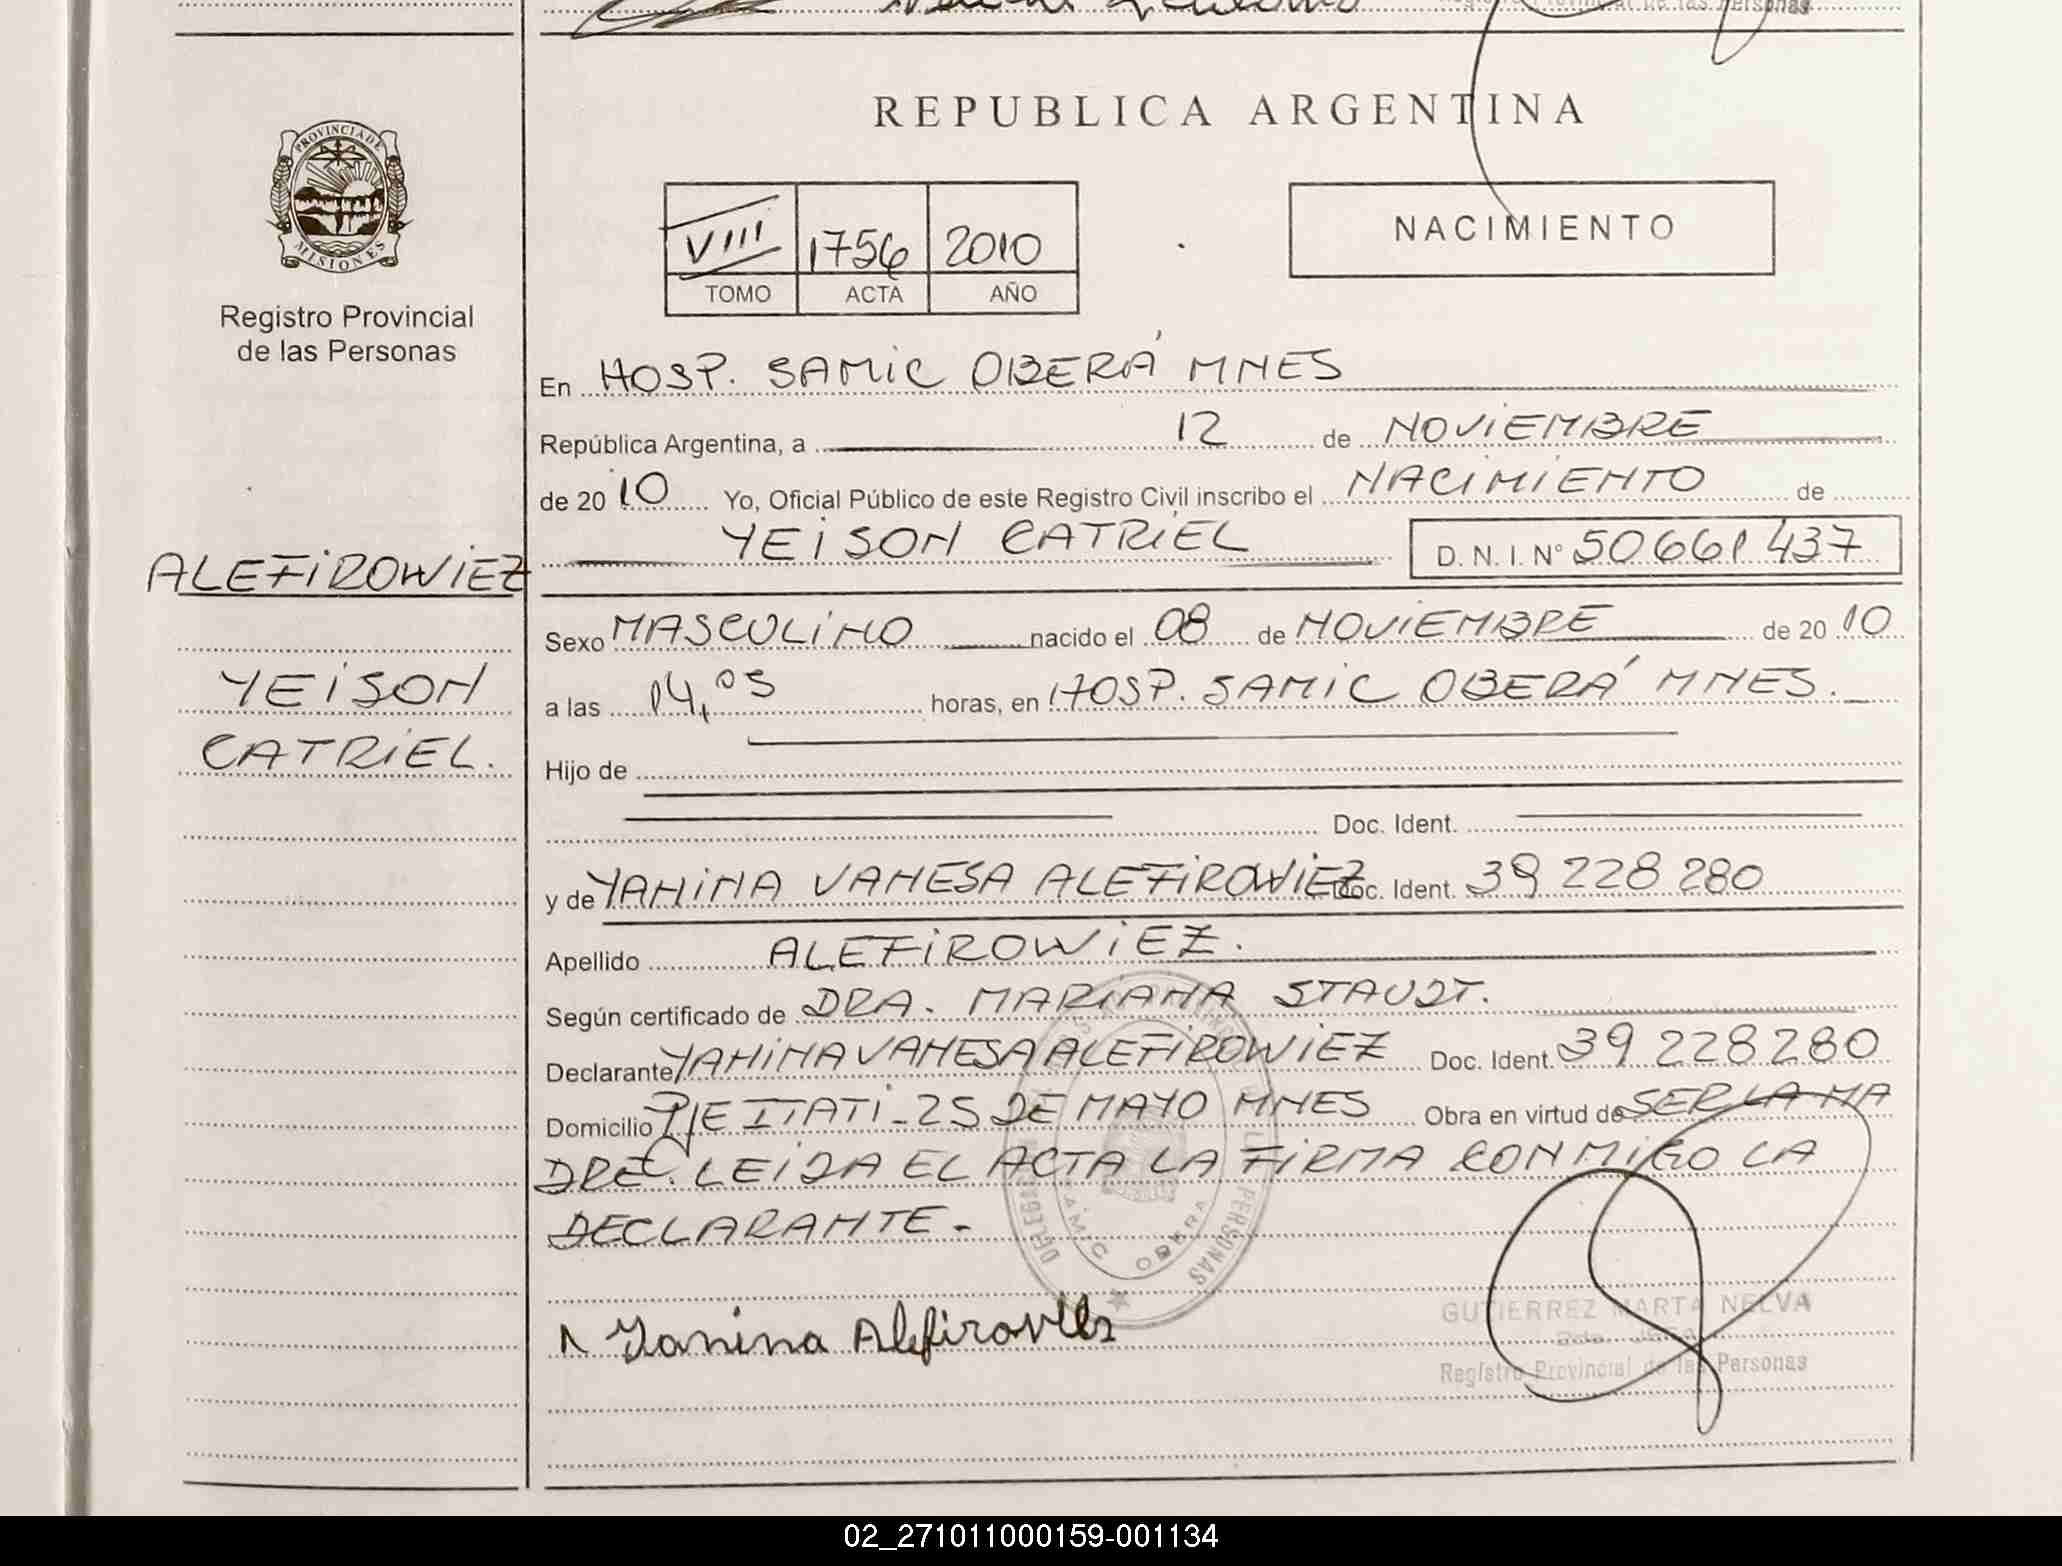 Registro Provincial de las Personas
REPUBLICA ARGENTINA
PROVINCIA DE
MISIONES
Registro Provincial
de las Personas
VIII 1756 2010
TOMO ACTA AÑO
NACIMIENTO
En HOSP. SAMIC OBERÁ MNES
República Argentina, a 12 de NOVIEMBRE
de 20 10 Yo, Oficial Público de este Registro Civil inscribo el NACIMIENTO de
YEISON CATRIEL D. N. I. Nº 50.661.437
ALEFIROWIEZ
YEISON
CATRIEL.
Sexo MASCULINO nacido el 08 de NOVIEMBRE de 20 10
a las 14,05 horas, en HOSP. SAMIC OBERÁ MNES.
Hijo de
Doc. Ident.
y de YANINA VANESA ALEFIROWIEZ Doc. Ident. 39 228 280
Apellido ALEFIROWIEZ.
Según certificado de DRA. MARIANA STAUDT.
Declarante YANINA VANESA ALEFIROWIEZ Doc. Ident. 39 228 280
Domicilio Pje ITATI - 25 DE MAYO MNES Obra en virtud de SER LA MA
DRE. LEIDA EL ACTA LA FIRMA CONMIGO LA
DECLARANTE -
SAMIC OBERA
Yanina Alefirowiez
GUTIERREZ MARTA NELVA
Registro Provincial de las Personas
02_271011000159-001134